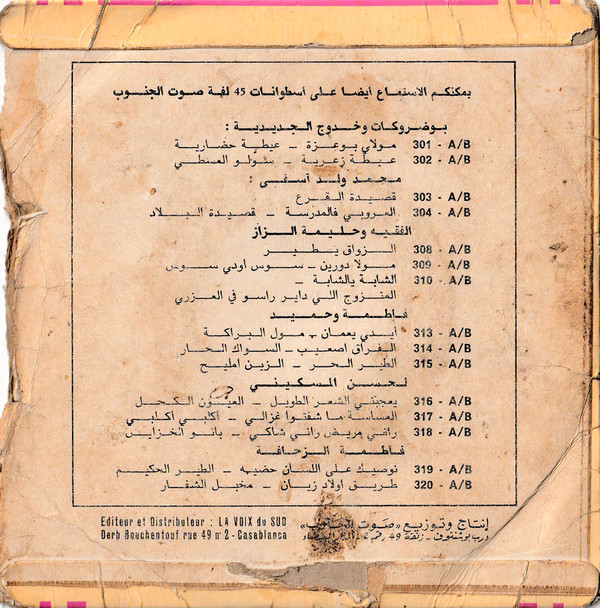 يمكنكم الاستماع أيضا على أسطوانات 45 لفة صوت الجنوب
بوضروكات وخدوج الجديدية :
301 - A/B مولاي بوعزة – عيطة حضارية
302 - A/B عيطة زعرية – سئولو العسطي
محمد ولد آسفي :
303 - A/B قصيدة القرع
304 - A/B العروبي فالمدرسة – قصيدة البلاد
الفقيه وحليمة الزاز
308 - A/B الزواق يطير
309 - A/B مولا دورين – سوس أودي سوس
310 - A/B الشابة يالشابة –
المتزوج اللي داير راسو في العزري
فاطمة وحميد
313 - A/B أيدي يعمان – مول البراكة
314 - A/B الفراق اصعيب – السواك الحار
315 - A/B الطير الحر – الزين امليح
لحسن المسكيني
316 - A/B يعجبني الشعر الطويل – العيون الكحل
317 - A/B العساسة ما شفتوا غزالي – أكلبي أكلبي
318 - A/B راني مريض راني شاكي – بانو الخزاين
فاطمة الزحافة
319 - A/B نوصيك على اللسان حضيه – الطير الحكيم
320 - A/B طريق اولاد زيان – مخبل الشفار
إنتاج وتوزيع «صوت الجنوب»
درب بوشنتوف – زنقة 49 رقم 2 –
Editeur et Distributeur : LA VOIX du SUD
Derb Bouchentouf rue 49 n° 2 - Casablanca